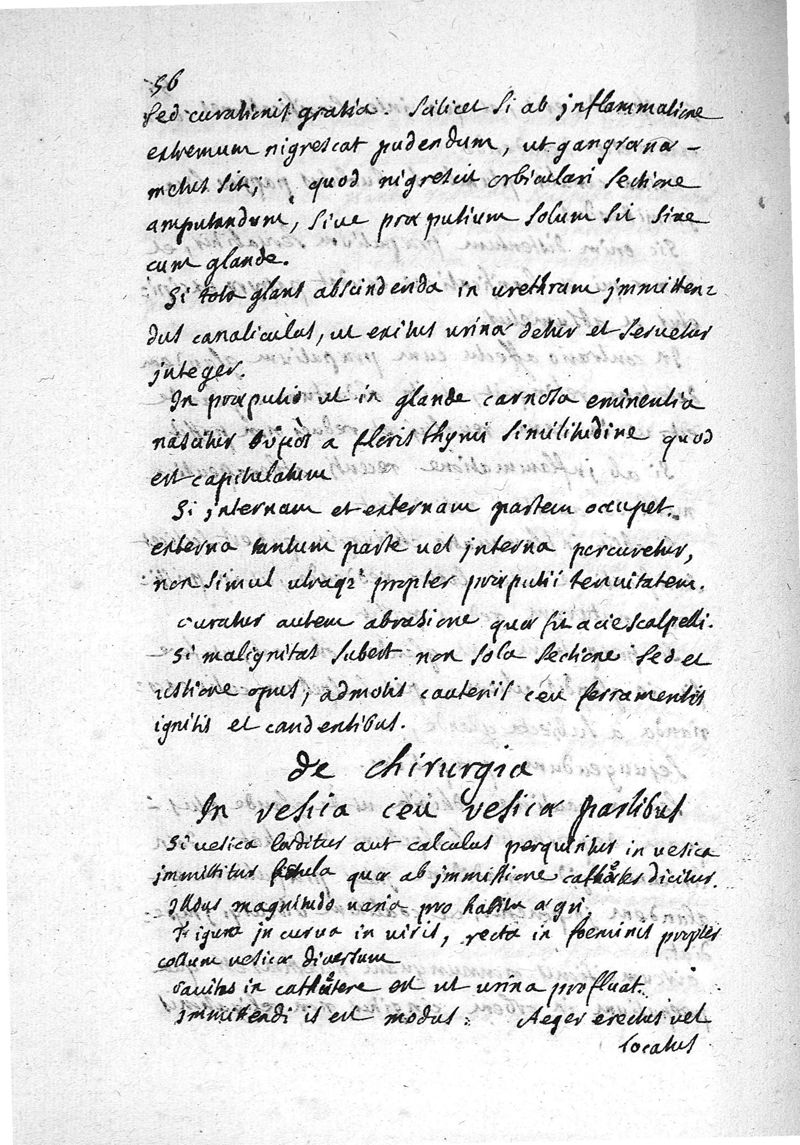 56
sed curationis gratia. scilicet si ab jnflammatione
extremum nigrescat pudendum, ut gangræna -
metus sit, quod nigrescit orbiculari sectione
amputandum, sive præputium solum sit sive
cum glande.
Si tota glans abscindenda in urethram jmmitten=
dus canaliculus, ut exitus urinæ detur et servetur
jnteger.
In præputio ut in glande carnosa eminentia
nascitur θύμος a floris thymi similitudine quod
est capitulatum
Si jnternam et externam partem occupet.
externa tantum parte vel jnterna percuretur,
non simul utraqz propter præputii tenuitatem.
curatur autem abrasione quæ fit acie scalpelli.
Si malignitas subest non sola sectione sed et
ustione opus, admotis cauteriis ceu ferramentis
ignitis et candentibus.
de chirurgia
In vesica ceu vesicæ partibus
Si vesica læditur aut calculus perquiritur in vesica
jmmittitur fistula quæ ab jmmissione catheter dicitur.
Illius magnitudo varia pro habitu ægri
Figura jncurva in viris, recta in foeminis propter
collum vesicæ diversum
Cavitas in cathetere est ut urina profluat.
jmmittendi is est modus: Aeger erectus vel
locatus